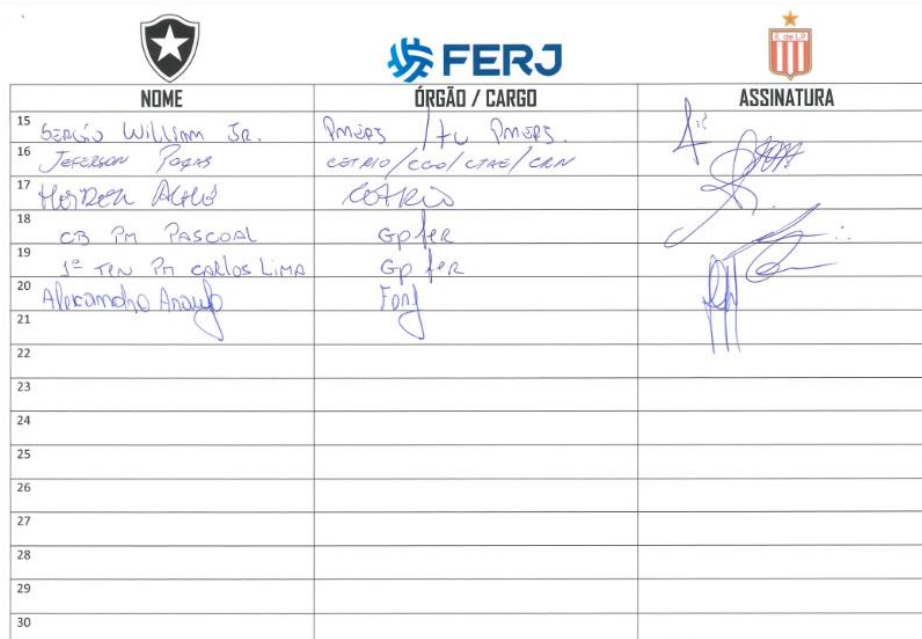 E. de L.P.
FERJ
NOME ÓRGÃO / CARGO ASSINATURA
15 SERGIO WILLIAM JR. PMERJ / PMERJ.
16 JEFERSON CETRIO/CGO/CTAE/CRN
17 CETRIO
18 CB PM PASCOAL Gpfer
19 1º TEN PM CARLOS LIMA Gpfer
20 Alexandro Araujo Ferj
21
22
23
24
25
26
27
28
29
30